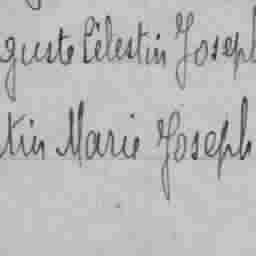 guste Célestin Joseph
tin Marie Joseph